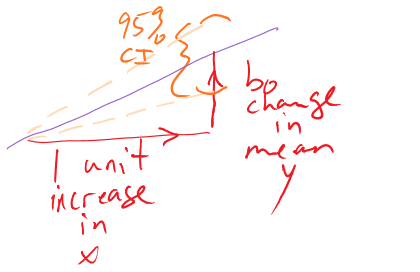 95%
CI
b0
change
in
mean
y
1 unit
increase
in
x